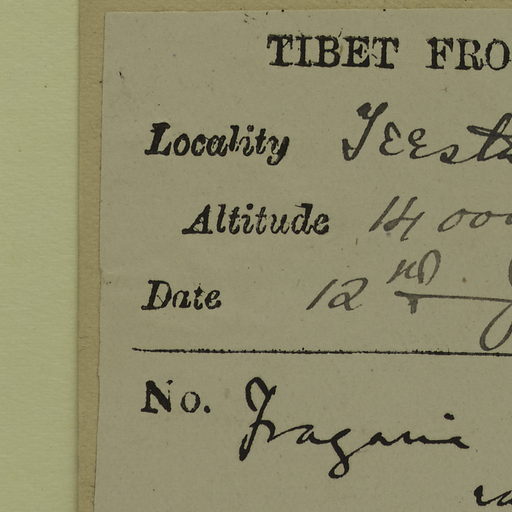 TIBET FRO
Locality Teesta
Altitude 14 000
Date 12
No. Fragaria